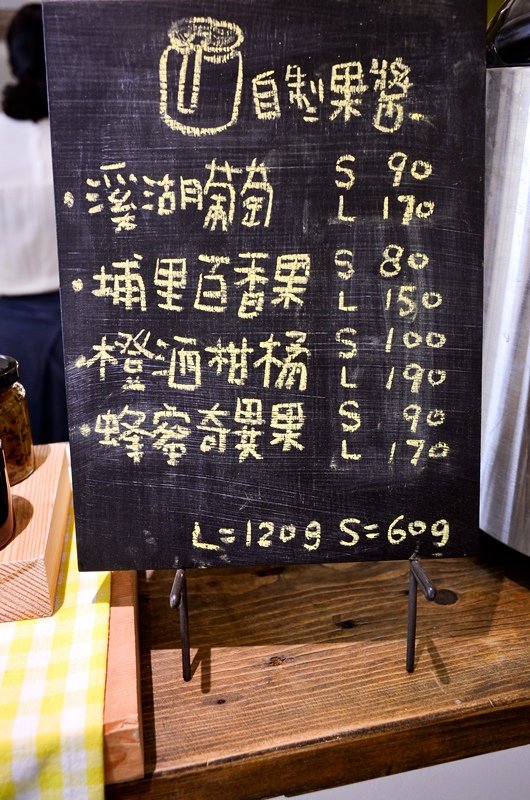 自製果醬
溪湖葡萄 S 90
L 170
埔里百香果 S 80
L 150
橙酒柑橘 S 100
L 190
蜂蜜奇異果 S 90
L 170
L=120g S=60g